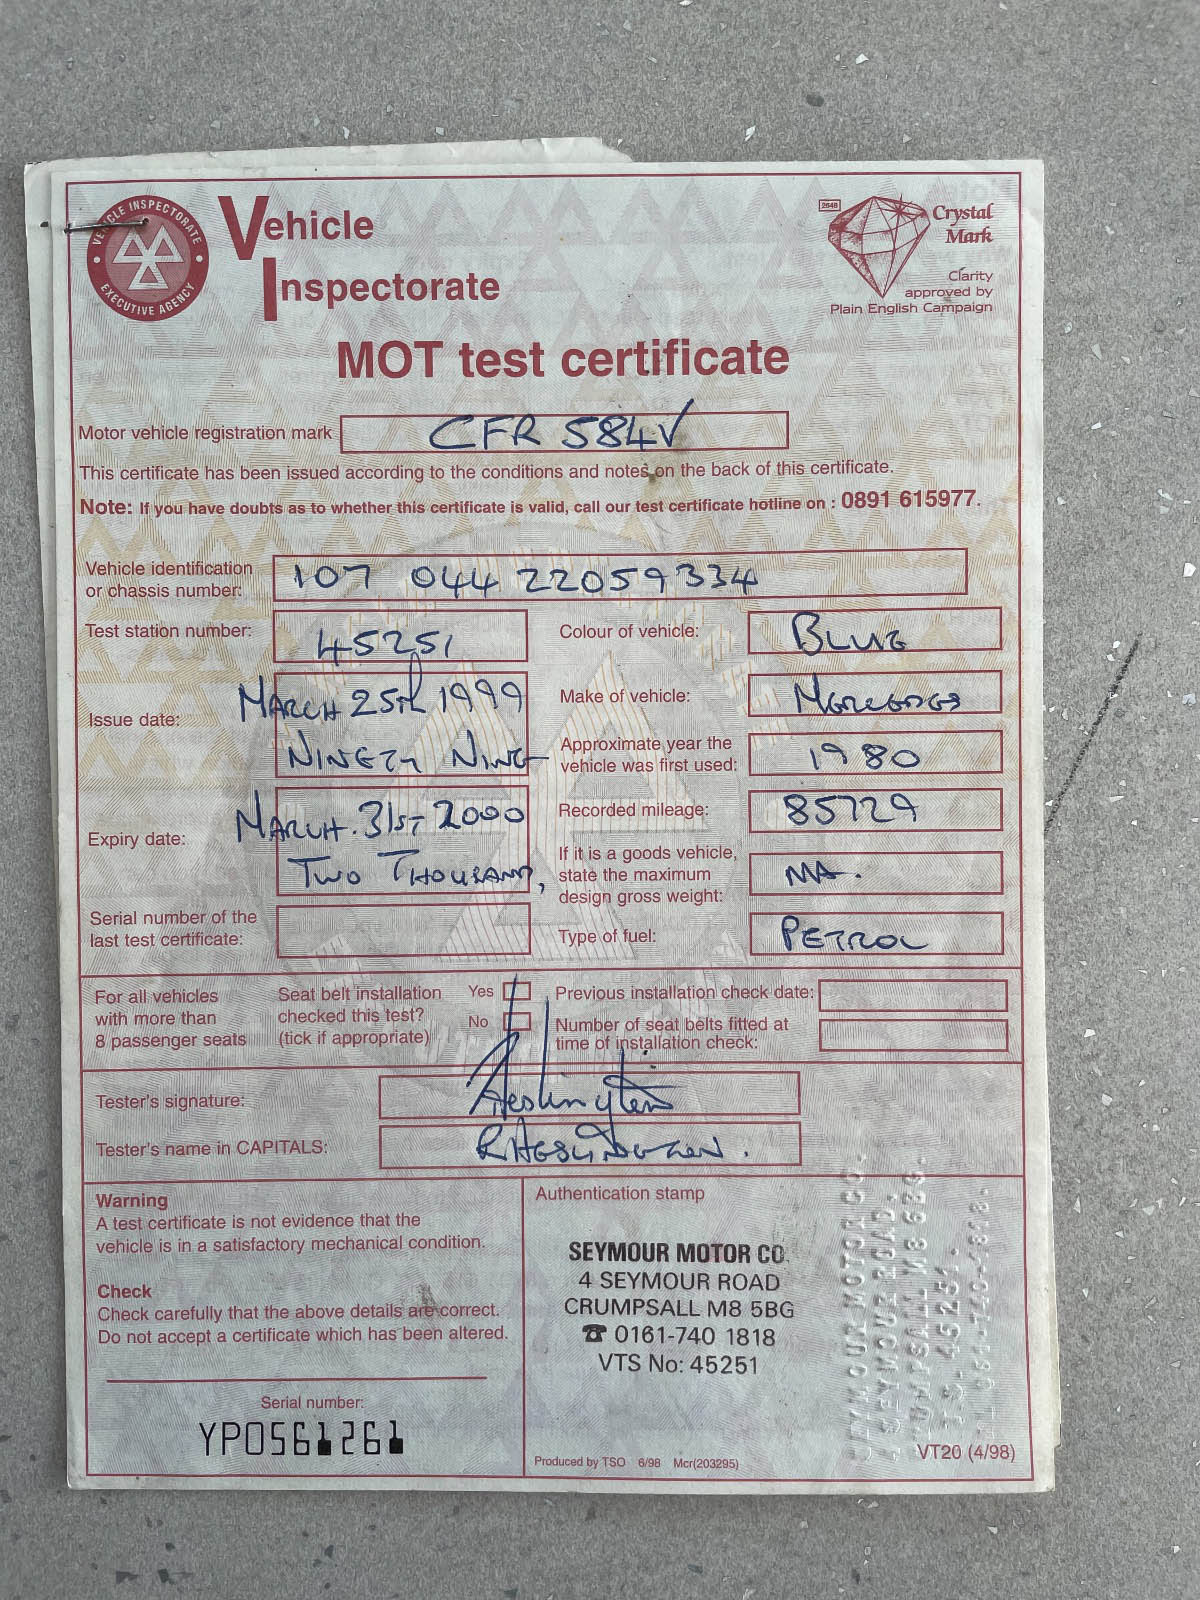 VEHICLE INSPECTORATE
EXECUTIVE AGENCY
Vehicle
Inspectorate
2648
Crystal
Mark
Clarity
approved by
Plain English Campaign
MOT test certificate
Motor vehicle registration mark CFR 584V
This certificate has been issued according to the conditions and notes on the back of this certificate.
Note: If you have doubts as to whether this certificate is valid, call our test certificate hotline on : 0891 615977.
Vehicle identification
or chassis number: 107 044 22059334
Test station number: 45251
Colour of vehicle: BLUE
Issue date: MARCH 25TH 1999
NINETY NINE
Make of vehicle: MERCEDES
Approximate year the
vehicle was first used: 1980
Expiry date: MARCH. 31ST 2000
TWO THOUSAND,
Recorded mileage: 85729
If it is a goods vehicle,
state the maximum
design gross weight: NA.
Serial number of the
last test certificate:
Type of fuel: PETROL
For all vehicles
with more than
8 passenger seats
Seat belt installation
checked this test?
(tick if appropriate)
Yes
No
Previous installation check date:
Number of seat belts fitted at
time of installation check:
Tester's signature:
Tester's name in CAPITALS:
Warning
A test certificate is not evidence that the
vehicle is in a satisfactory mechanical condition.
Check
Check carefully that the above details are correct.
Do not accept a certificate which has been altered.
Serial number:
YP0561261
Authentication stamp
SEYMOUR MOTOR CO.
4 SEYMOUR ROAD
CRUMPSALL M8 5BG
☎ 0161-740 1818
VTS No: 45251
Produced by TSO 6/98 Mcr(203295)
VT20 (4/98)